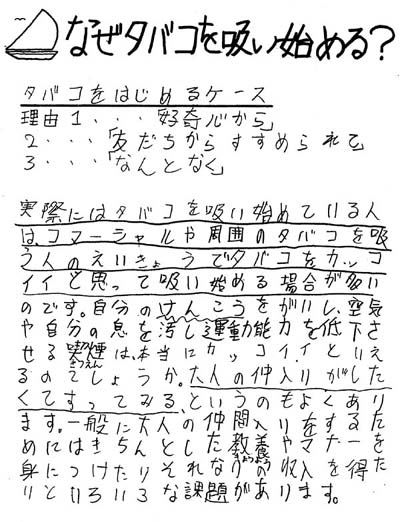 なぜタバコを吸い始める?
タバコをはじめるケース
理由1・・・「好奇心から」
2・・・「友だちからすすめられて」
3・・・「なんとなく」
実際にはタバコを吸い始めている人
は、コマーシャルや周囲のタバコを吸
う人のえいきょうでタバコをカッコ
イイと思って吸い始める場合が多い
のです。自分のけんこうをがいし、空気
や自分の息を汚し運動能力を低下さ
せる喫煙は、本当にカッコイイといえ
きつえん
るのでしょうか。大人の仲入りがした
くてすってみる、というのもよくあり
ます。一般に大人の仲間入りをするた
めにはきちんとした教養やマナーを
きょうよう
身につけたりそれなりの収入を得た
りといろいろな課題があります。